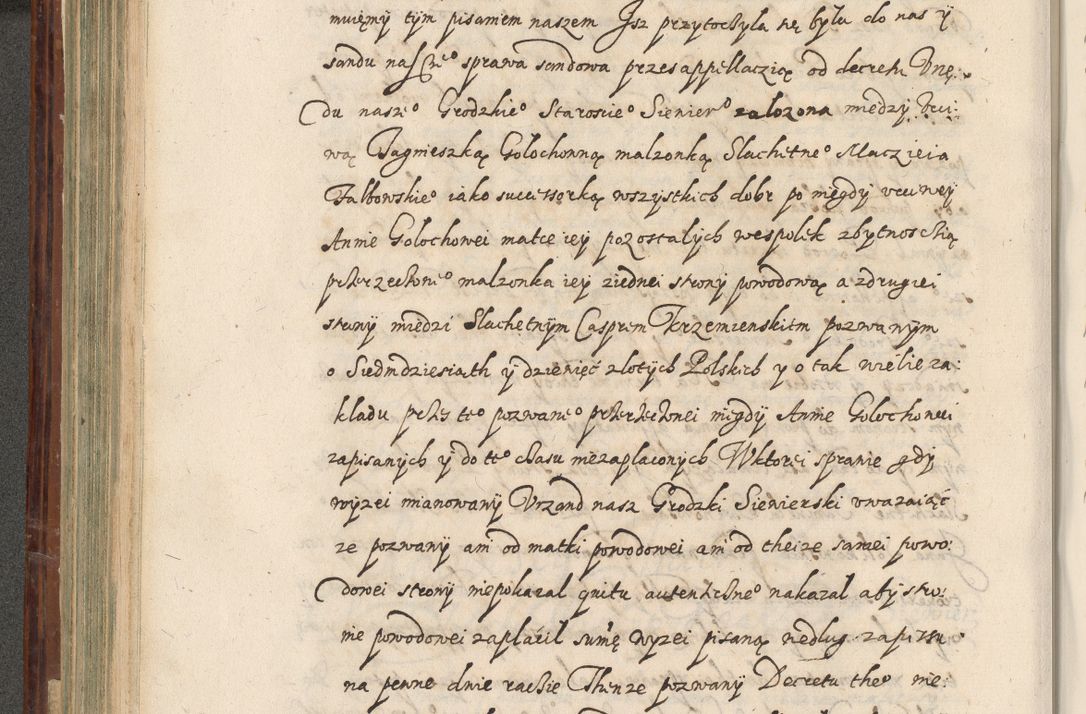 muięmy tym pisaniem naszem Isz przytoczyla się byla do nas y
sandu naszeo sprawa sandowa przes appellaczią od decretu Vrzę:
du naszeo Grodzkieo Staroscieo Siewiero zalozona miedzy Vcci:
wą Jagnieszką Golochowną malzonką Slachetneo Maczieia
Falkowskieo iako successorką wszystkich dobr po niegdy vcciwey
Annie Golochowei matce iey pozostalych wespolek zbytnosczią
przerzeczoneo malzonka iey ziednei strony powodową a zdrugiei
strony miedzi Slachetnym Casprem Krzemienskiem pozwanym
o Siedmdziesiąth y dziewięć zlotych Polskich y o tak wielie za:
kladu przez teo pozwaneo przerzeczonei niegdy Annie Golochowei
zapisanych y do teo czasu niezaplaconych W ktorei sprawie gdy
wyzei mianowany Vrzand nasz Grodzki Siewierski vwazaiąć
ze pozwany ani od matki powodowei ani od theize samei powo:
dowei strony niepokazal quitu autenticzneo nakazal aby stro:
nie powodowei zaplácil sumę wyzei pisaną wedlug zapissu
na pewne dnie raczie Thenze pozwany Decretu theo nie: